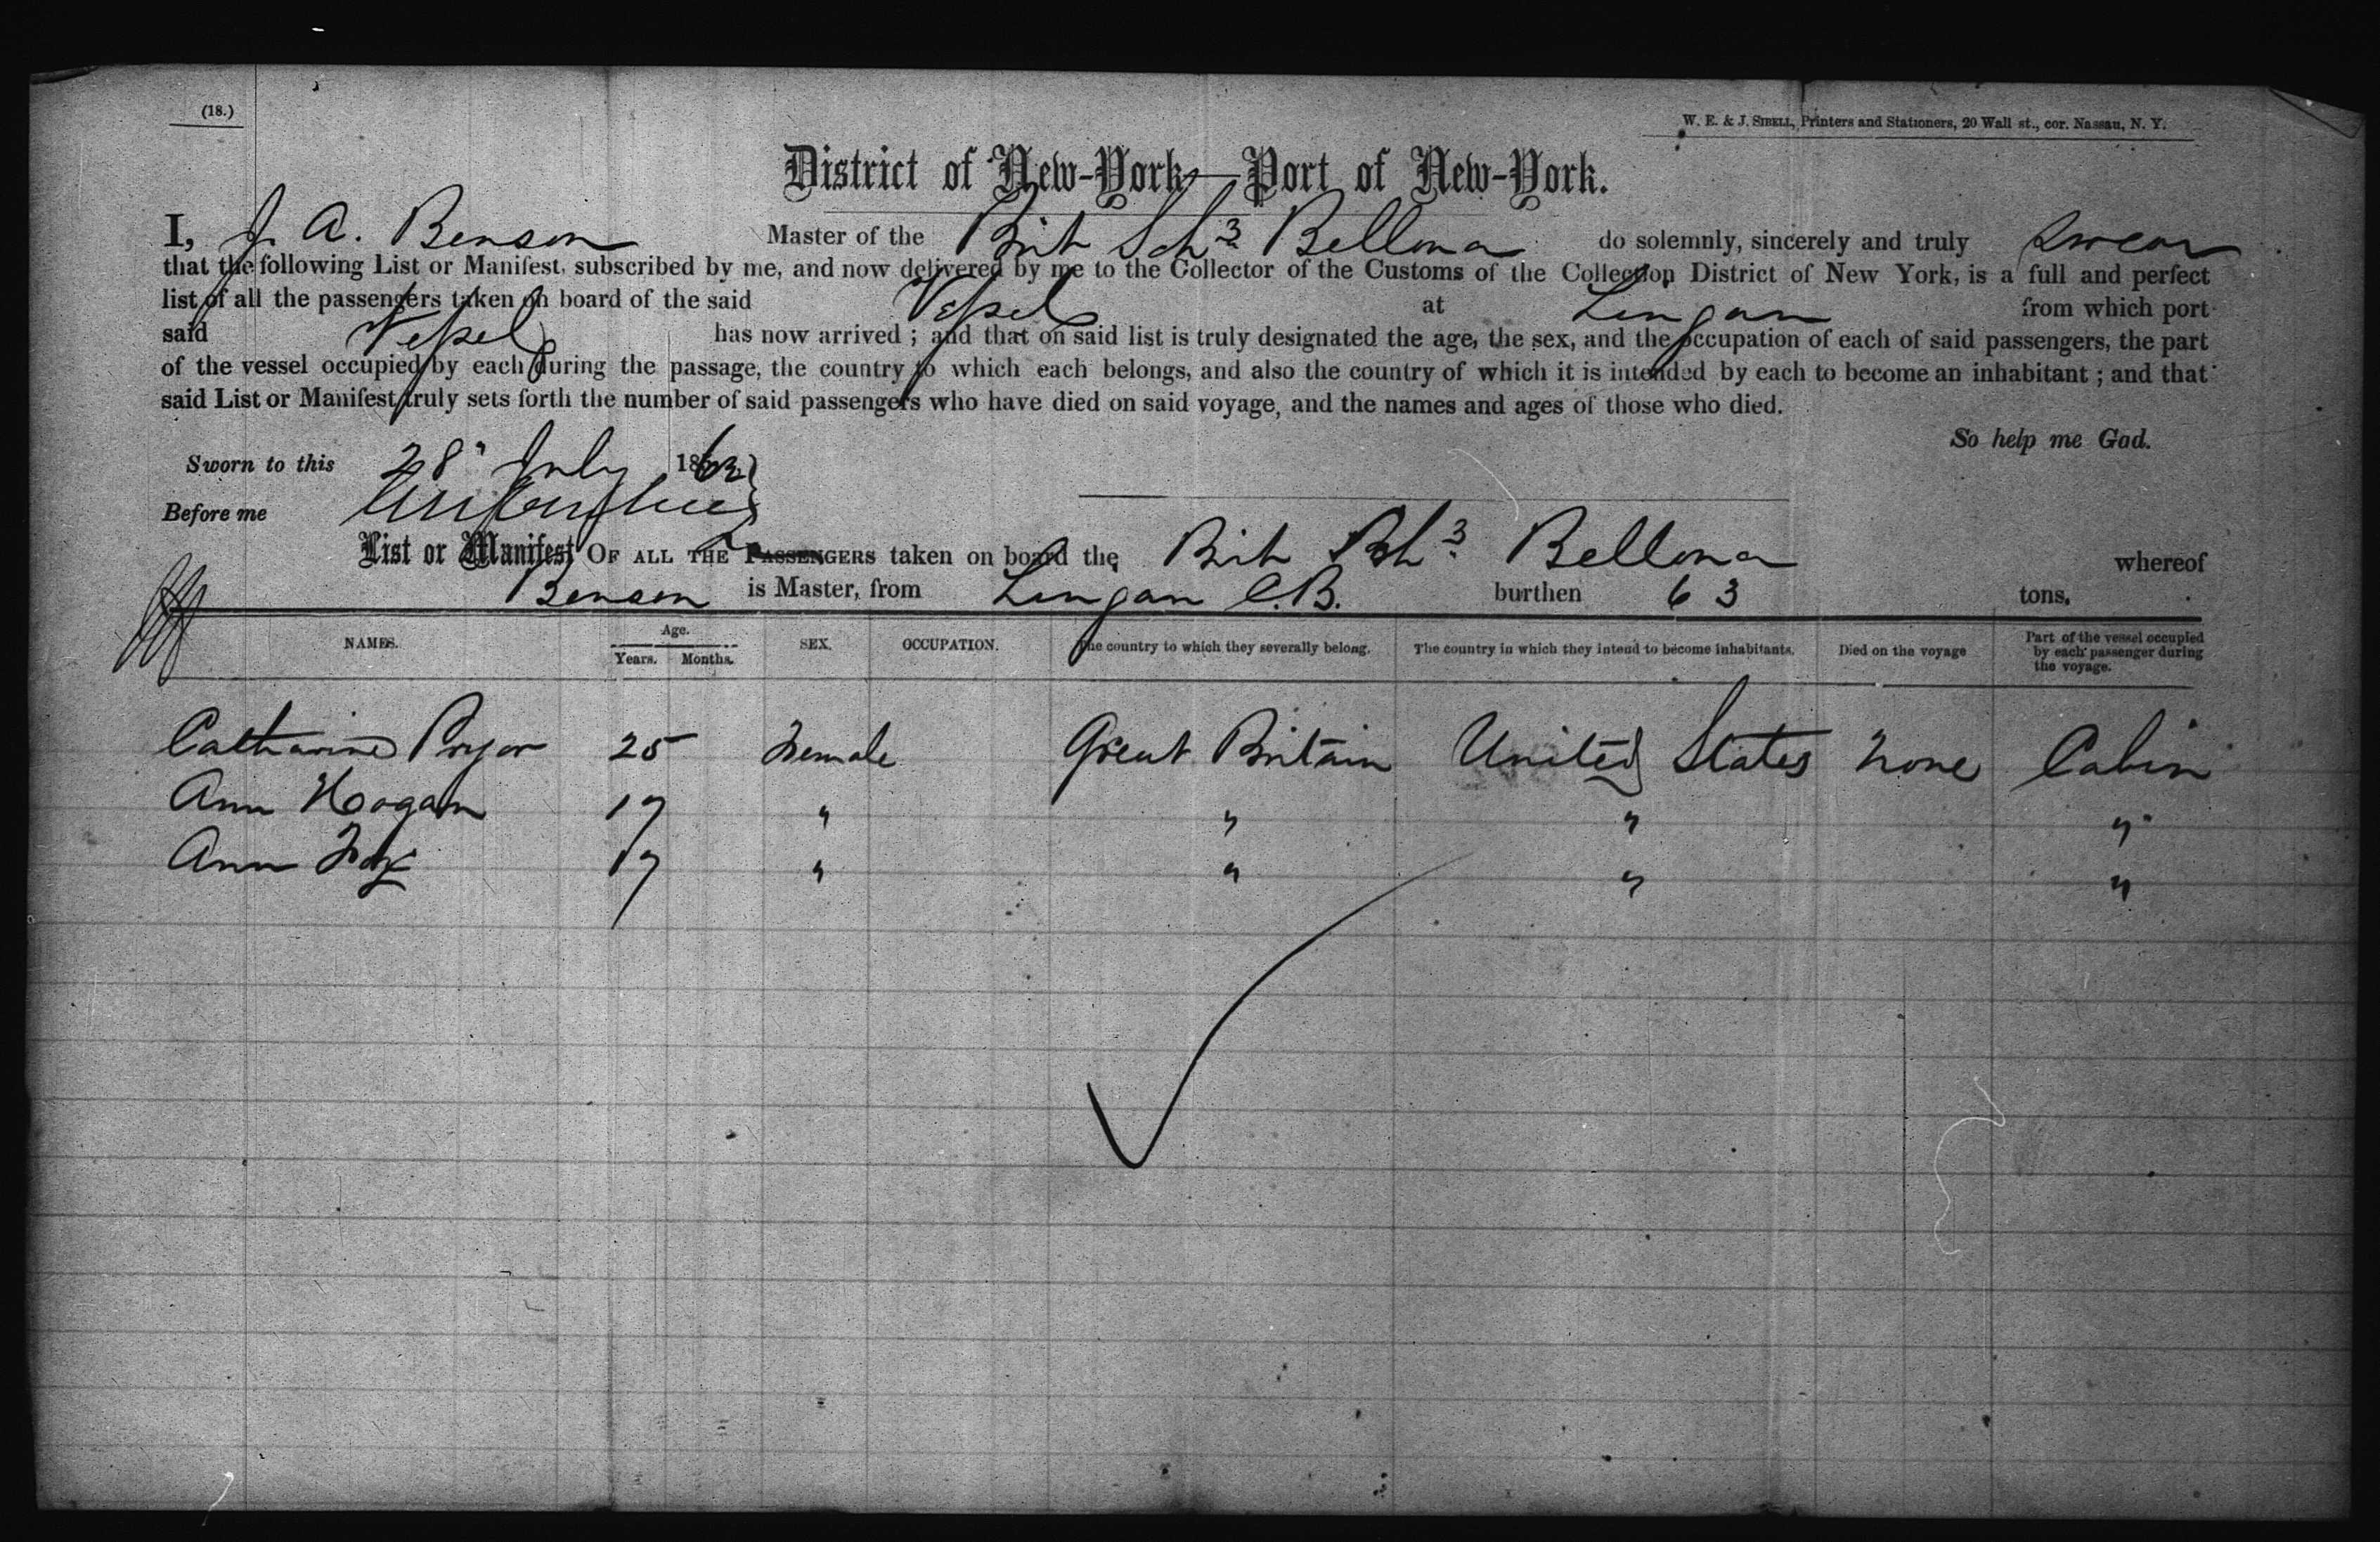 (18.)
W. E. & J. SIBELL, Printers and Stationers, 20 Wall st., cor. Nassau, N. Y.
District of New-York—Port of New-York.
I, J. A. Benson Master of the Brit Schr Bellona do solemnly, sincerely and truly swear
that the following List or Manifest, subscribed by me, and now delivered by me to the Collector of the Customs of the Collection District of New York, is a full and perfect
list of all the passengers taken on board of the said Vessel at Lingan from which port
said Vessel has now arrived ; and that on said list is truly designated the age, the sex, and the occupation of each of said passengers, the part
of the vessel occupied by each during the passage, the country to which each belongs, and also the country of which it is intended by each to become an inhabitant ; and that
said List or Manifest truly sets forth the number of said passengers who have died on said voyage, and the names and ages of those who died.
So help me God.
Sworn to this 28" July 1863
Before me
List or Manifest OF ALL THE PASSENGERS taken on board the Brit Schr Bellona whereof
Benson is Master, from Lingan C.B. burthen 63 tons.
NAMES. Age. Years. Months. SEX. OCCUPATION. The country to which they severally belong. The country in which they intend to become inhabitants. Died on the voyage Part of the vessel occupied by each passenger during the voyage.
Catharine Pryor 25 Female Great Britain United States None Cabin
Ann Hogan 17 " " " "
Ann Fox 17 " " " "